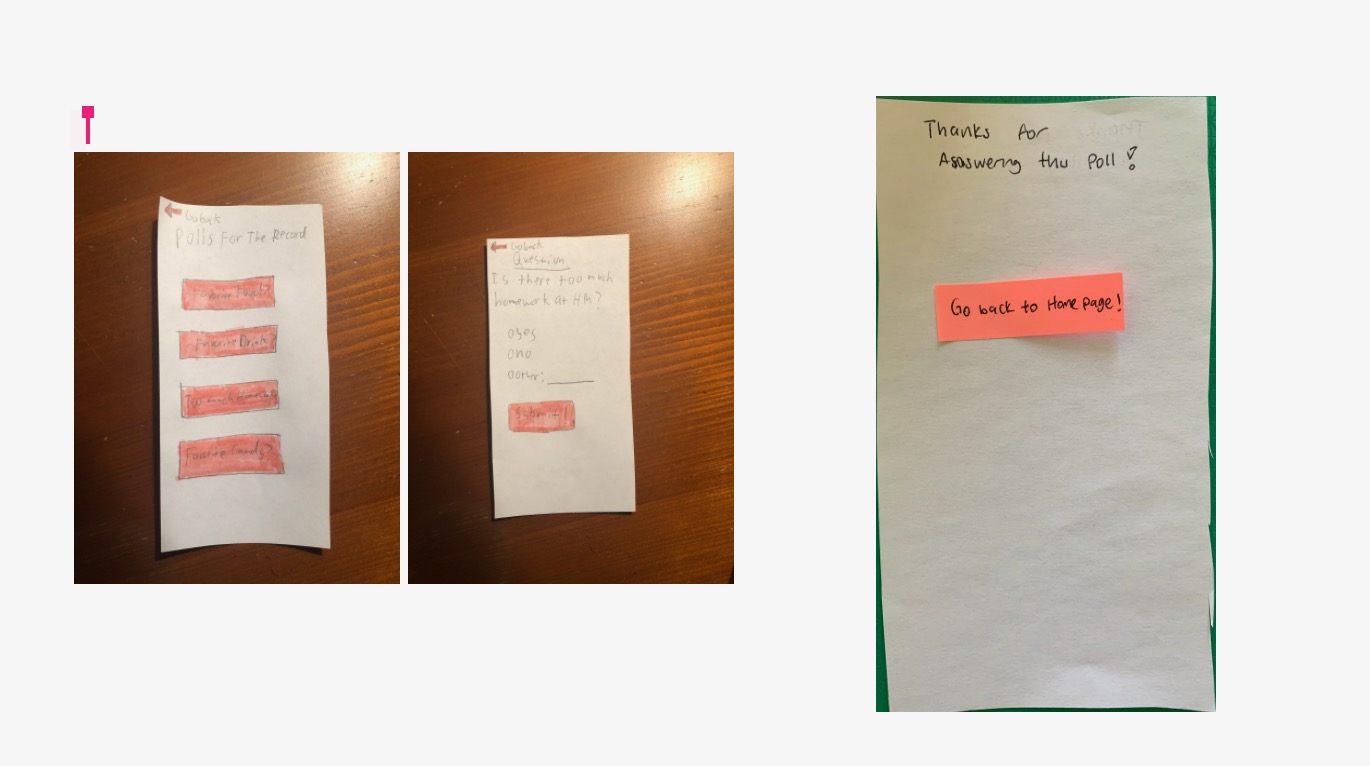 Go back
Polls For The Record
Favorite Food?
Favorite Drink?
Too much Homework
Favorite Candy?
Go back
Question
Is there too much
homework at HM?
o yes
o no
o other: ______
Submit!
Thanks for
Asaswering thu Poll!
Go back to Home page!